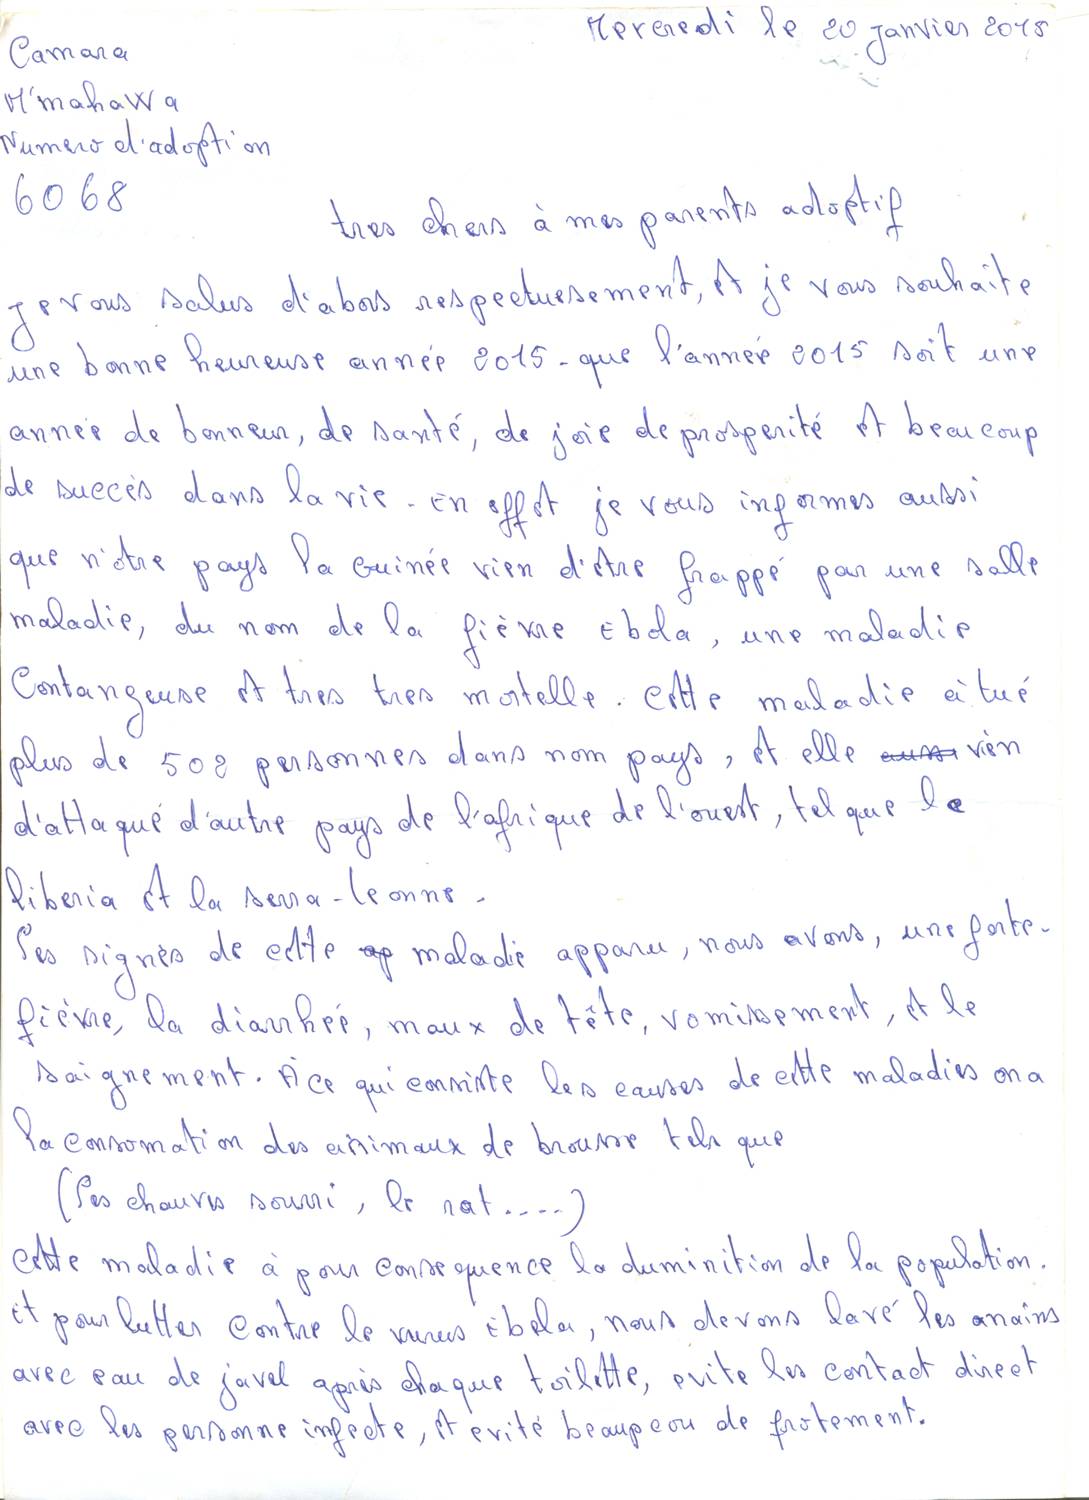 Mercredi le 20 Janvier 2015
Camara
M'mahawa
Numero d'adoption
6068
tres chers à mes parents adoptif
Je vous salus d'abors respectuesement, et je vous souhaite
une bonne heureuse année 2015 - que l'année 2015 soit une
année de bonneur, de santé, de joie de prosperité et beaucoup
de succès dans la vie - En effet je vous informes aussi
que nôtre pays la Guinée vien d'être frappé par une salle
maladie, du nom de la fièvre Ebola, une maladie
Contangeuse et tres tres mortelle. Cette maladie à tué
plus de 502 personnes dans nom pays, et elle vien
d'attaqué d'autre pays de l'afrique de l'ouest, tel que le
liberia et la serra-leonne.
les signès de cette maladie apparu, nous avons, une forte-
fièvre, la diarrheé, maux de tête, vomissement, et le
saignement. À ce qui consiste les causes de cette maladies on a
la consomation des animaux de brousse tels que
(les chauves sourri, le rat.....)
Cette maladie à pour consequence la duminition de la population.
Et pour lutter contre le vurus Ebola, nous devons lavé les mains
avec eau de javel après chaque toilette, evite les contact direct
avec les personne infecte, et evité beaupcou de frotement.